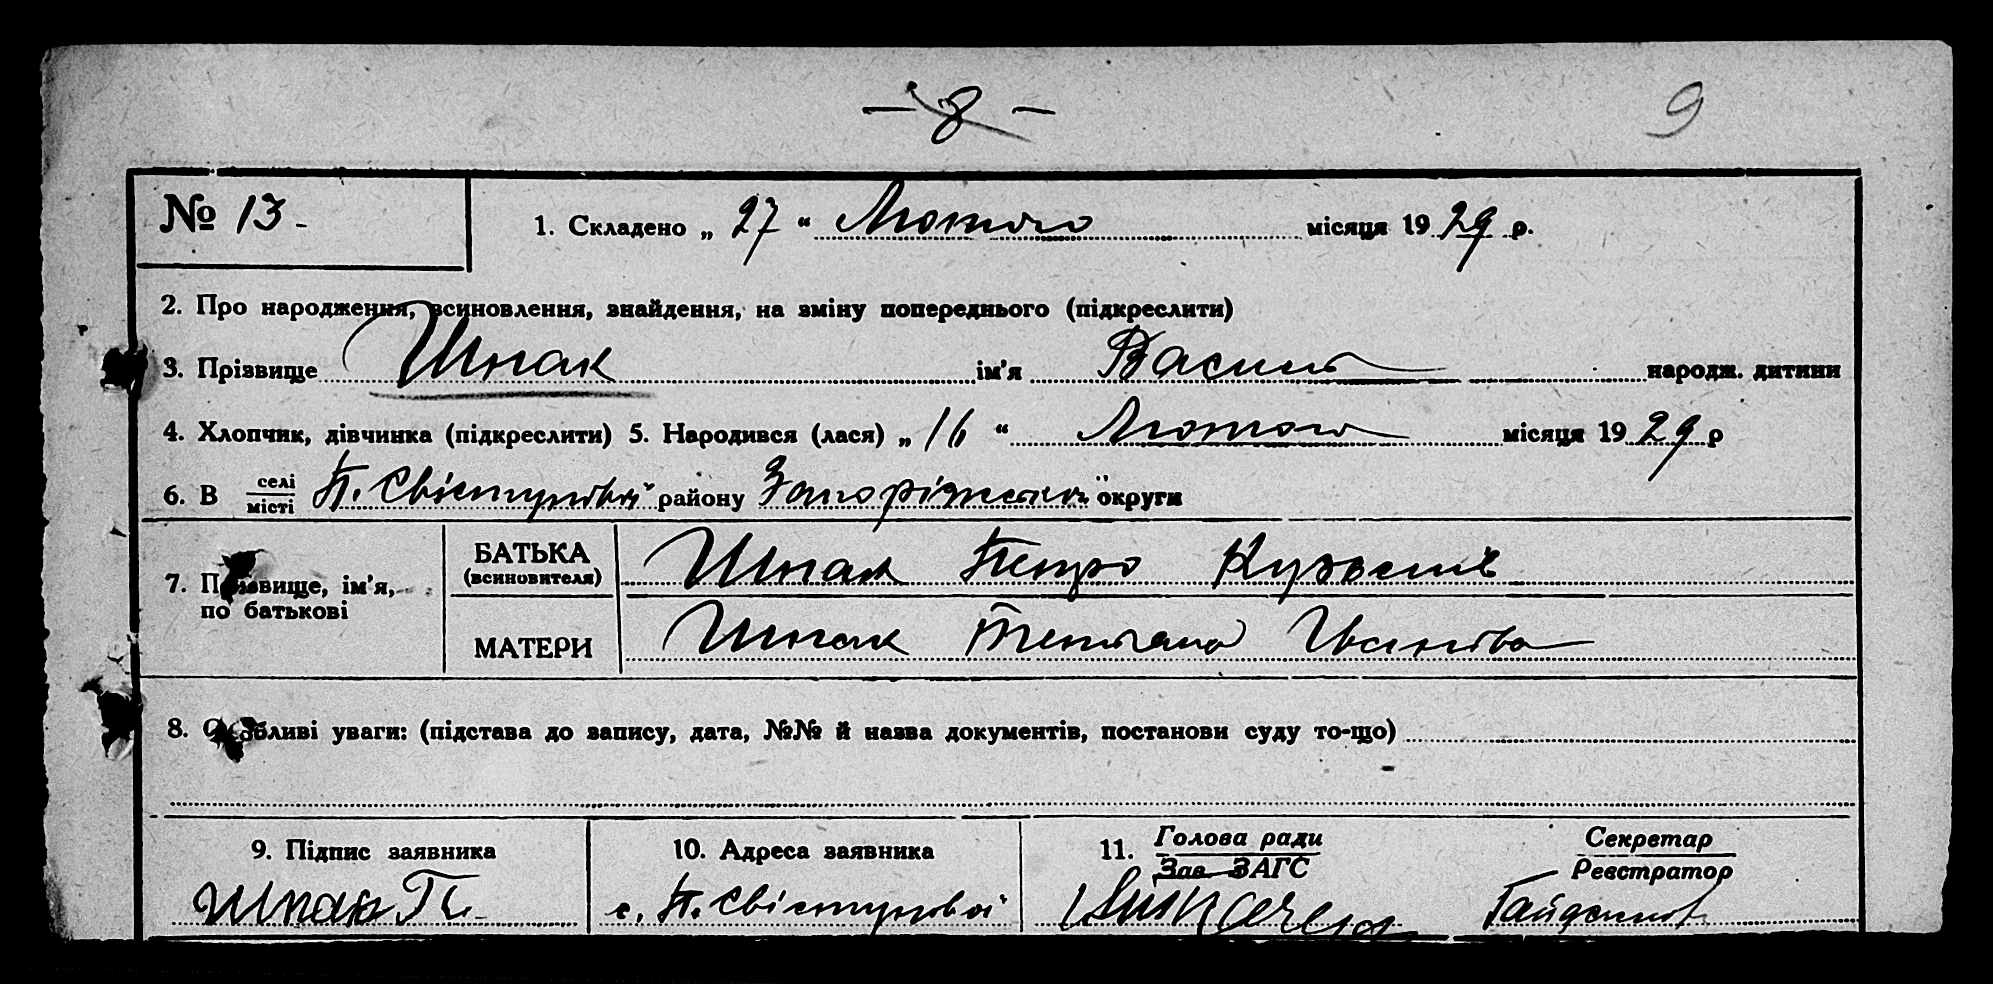 - 8 -
9
№ 13 -
1. Складено „ 27 “ Лютого місяця 1929 р.
2. Про народження, всиновлення, знайдення, на зміну попереднього (підкреслити)
3. Прізвище Шпак ім'я Василь народж. дитини
4. Хлопчик, дівчинка (підкреслити) 5. Народився (лася) „ 16 “ Лютого місяця 1929 р
6. В селі
місті
П. Свістунової району Запоріжської округи
7. Прізвище, ім'я,
по батькові
БАТЬКА
(всиновителя)
Шпак Петро Кузьмич
МАТЕРИ
Шпак Тетяна Іванівна
8. Особливі уваги: (підстава до запису, дата, №№ й назва документів, постанови суду то-що)
9. Підпис заявника
Шпак П.
10. Адреса заявника
с. П. Свістунової
11. Голова ради
Зав. ЗАГС
Секретар
Реєстратор